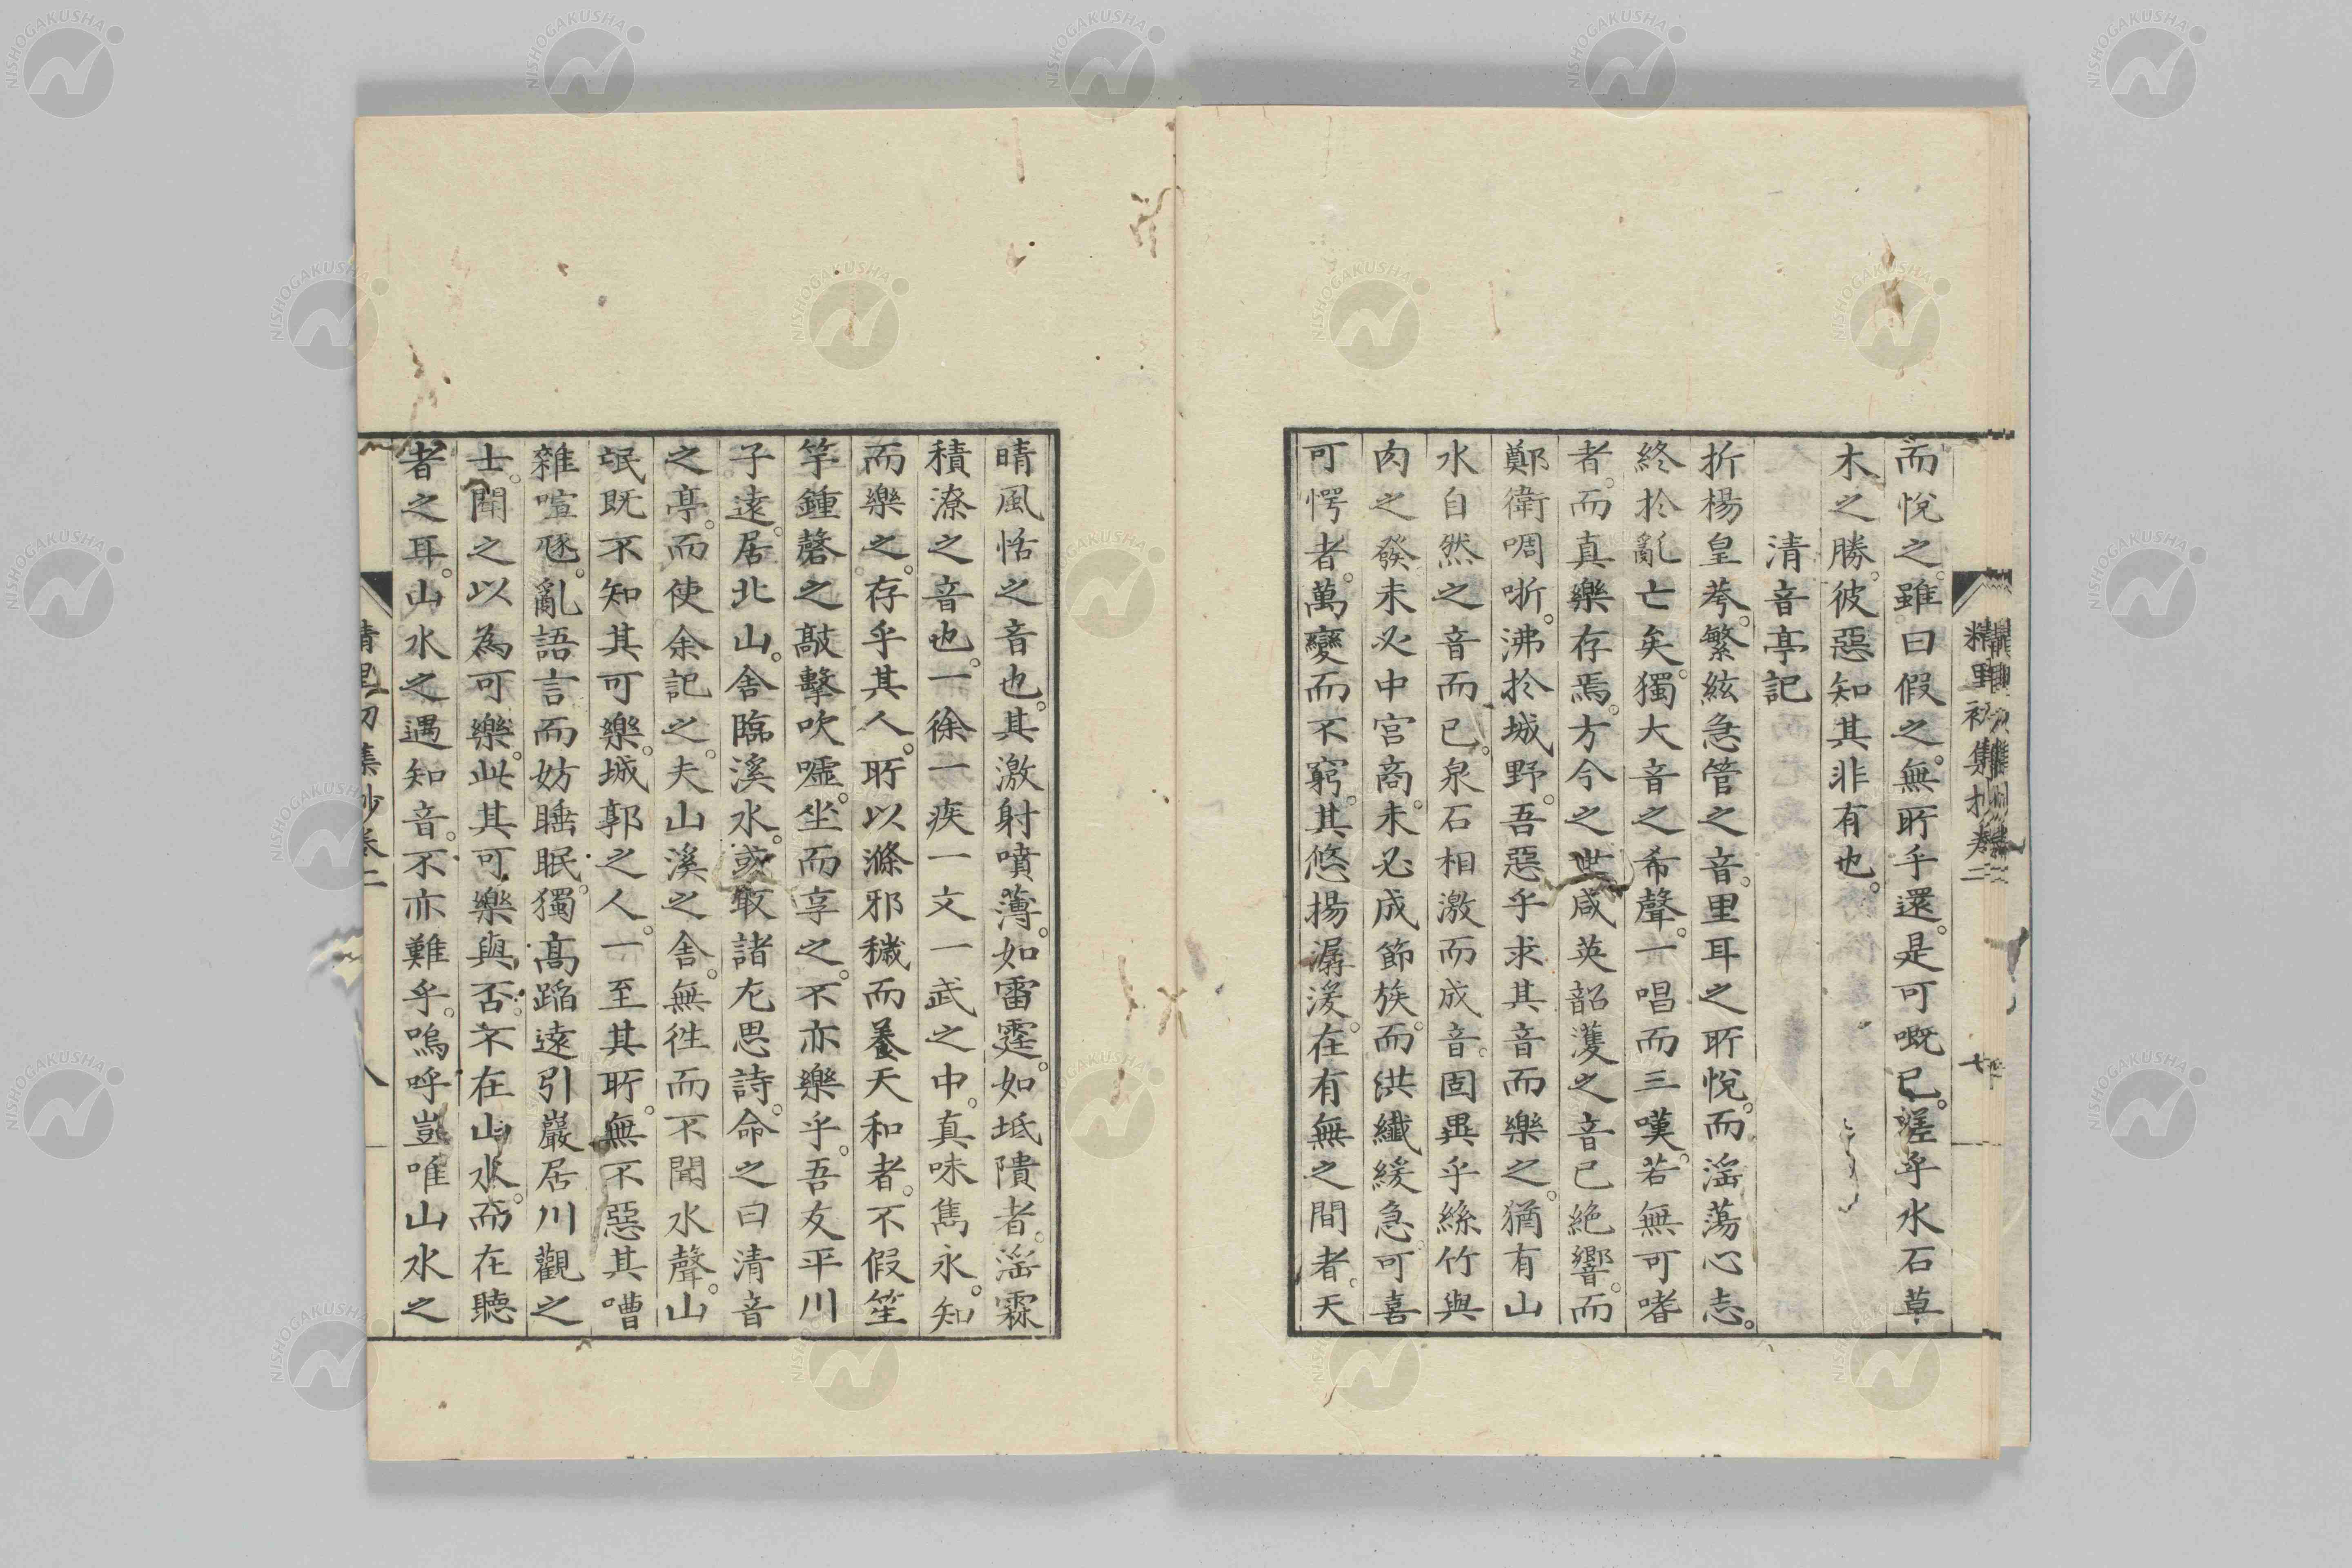 而悅之。雖曰假之。無所乎還。是可嘅已。嗟乎水石草
木之勝。彼惡知其非有也。
清音亭記
折楊皇荂。繁絃急管之音。里耳之所悅。而淫蕩心志。
終於亂亡矣。獨大音之希聲。一唱而三嘆。若無可嗜
者。而真樂存焉。方今之世。咸英韶濩之音已絶響。而
鄭衛啁哳。沸於城野。吾惡乎求其音而樂之。猶有山
水自然之音而已。泉石相激而成音。固異乎絲竹與
肉之發。未必中宮商。未必成節族。而洪纖緩急。可喜
可愕者。萬變而不窮。其悠揚潺湲。在有無之間者。天
晴風恬之音也。其激射噴薄。如雷霆。如坻隤者。淫霖
積潦之音也。一徐一疾一文一武之中。真味雋永。知
而樂之。存乎其人。所以滌邪穢而養天和者。不假笙
竽鍾磬之敲擊吹噓。坐而享之。不亦樂乎。吾友平川
子遠。居北山。舍臨溪水。或取諸左思詩。命之曰清音
之亭。而使余記之。夫山溪之舍。無徃而不聞水聲。山
氓既不知其可樂。城郭之人。一至其所。無不惡其嘈
雜喧豗。亂語言而妨睡眠。獨高蹈遠引巖居川觀之
士。聞之以為可樂。此其可樂與否。不在山水。而在聽
者之耳。山水之遇知音。不亦難乎。嗚呼豈唯山水之
精里初集抄卷二
七
八